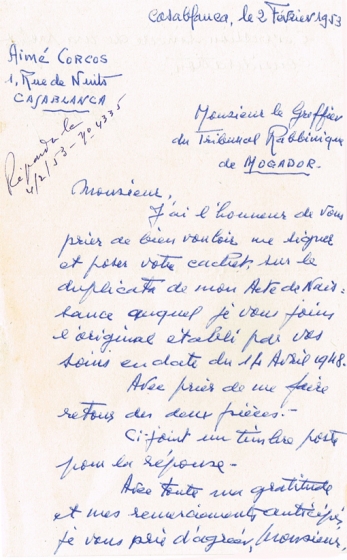 Casablanca, le 2 Février 1953
Aimé CORCOS
1, Rue de Nuits
CASABLANCA
Répondu le
4/2/53 - No 4335
Monsieur le Greffier
du Tribunal Rabbinique
de MOGADOR.
Monsieur,
J'ai l'honneur de vous
prier de bien vouloir me signer
et poser votre cachet, sur le
duplicata de mon Acte de Nais-
sance auquel je vous joins
l'original établi par vos
soins en date du 14 Avril 1948.
Avec prier de me faire
retour des deux pièces.-
Ci-joint un timbre poste
pour la réponse -
Avec toute ma gratitude
et mes remerciements anticipés,
je vous prie d'agréer, Monsieur,